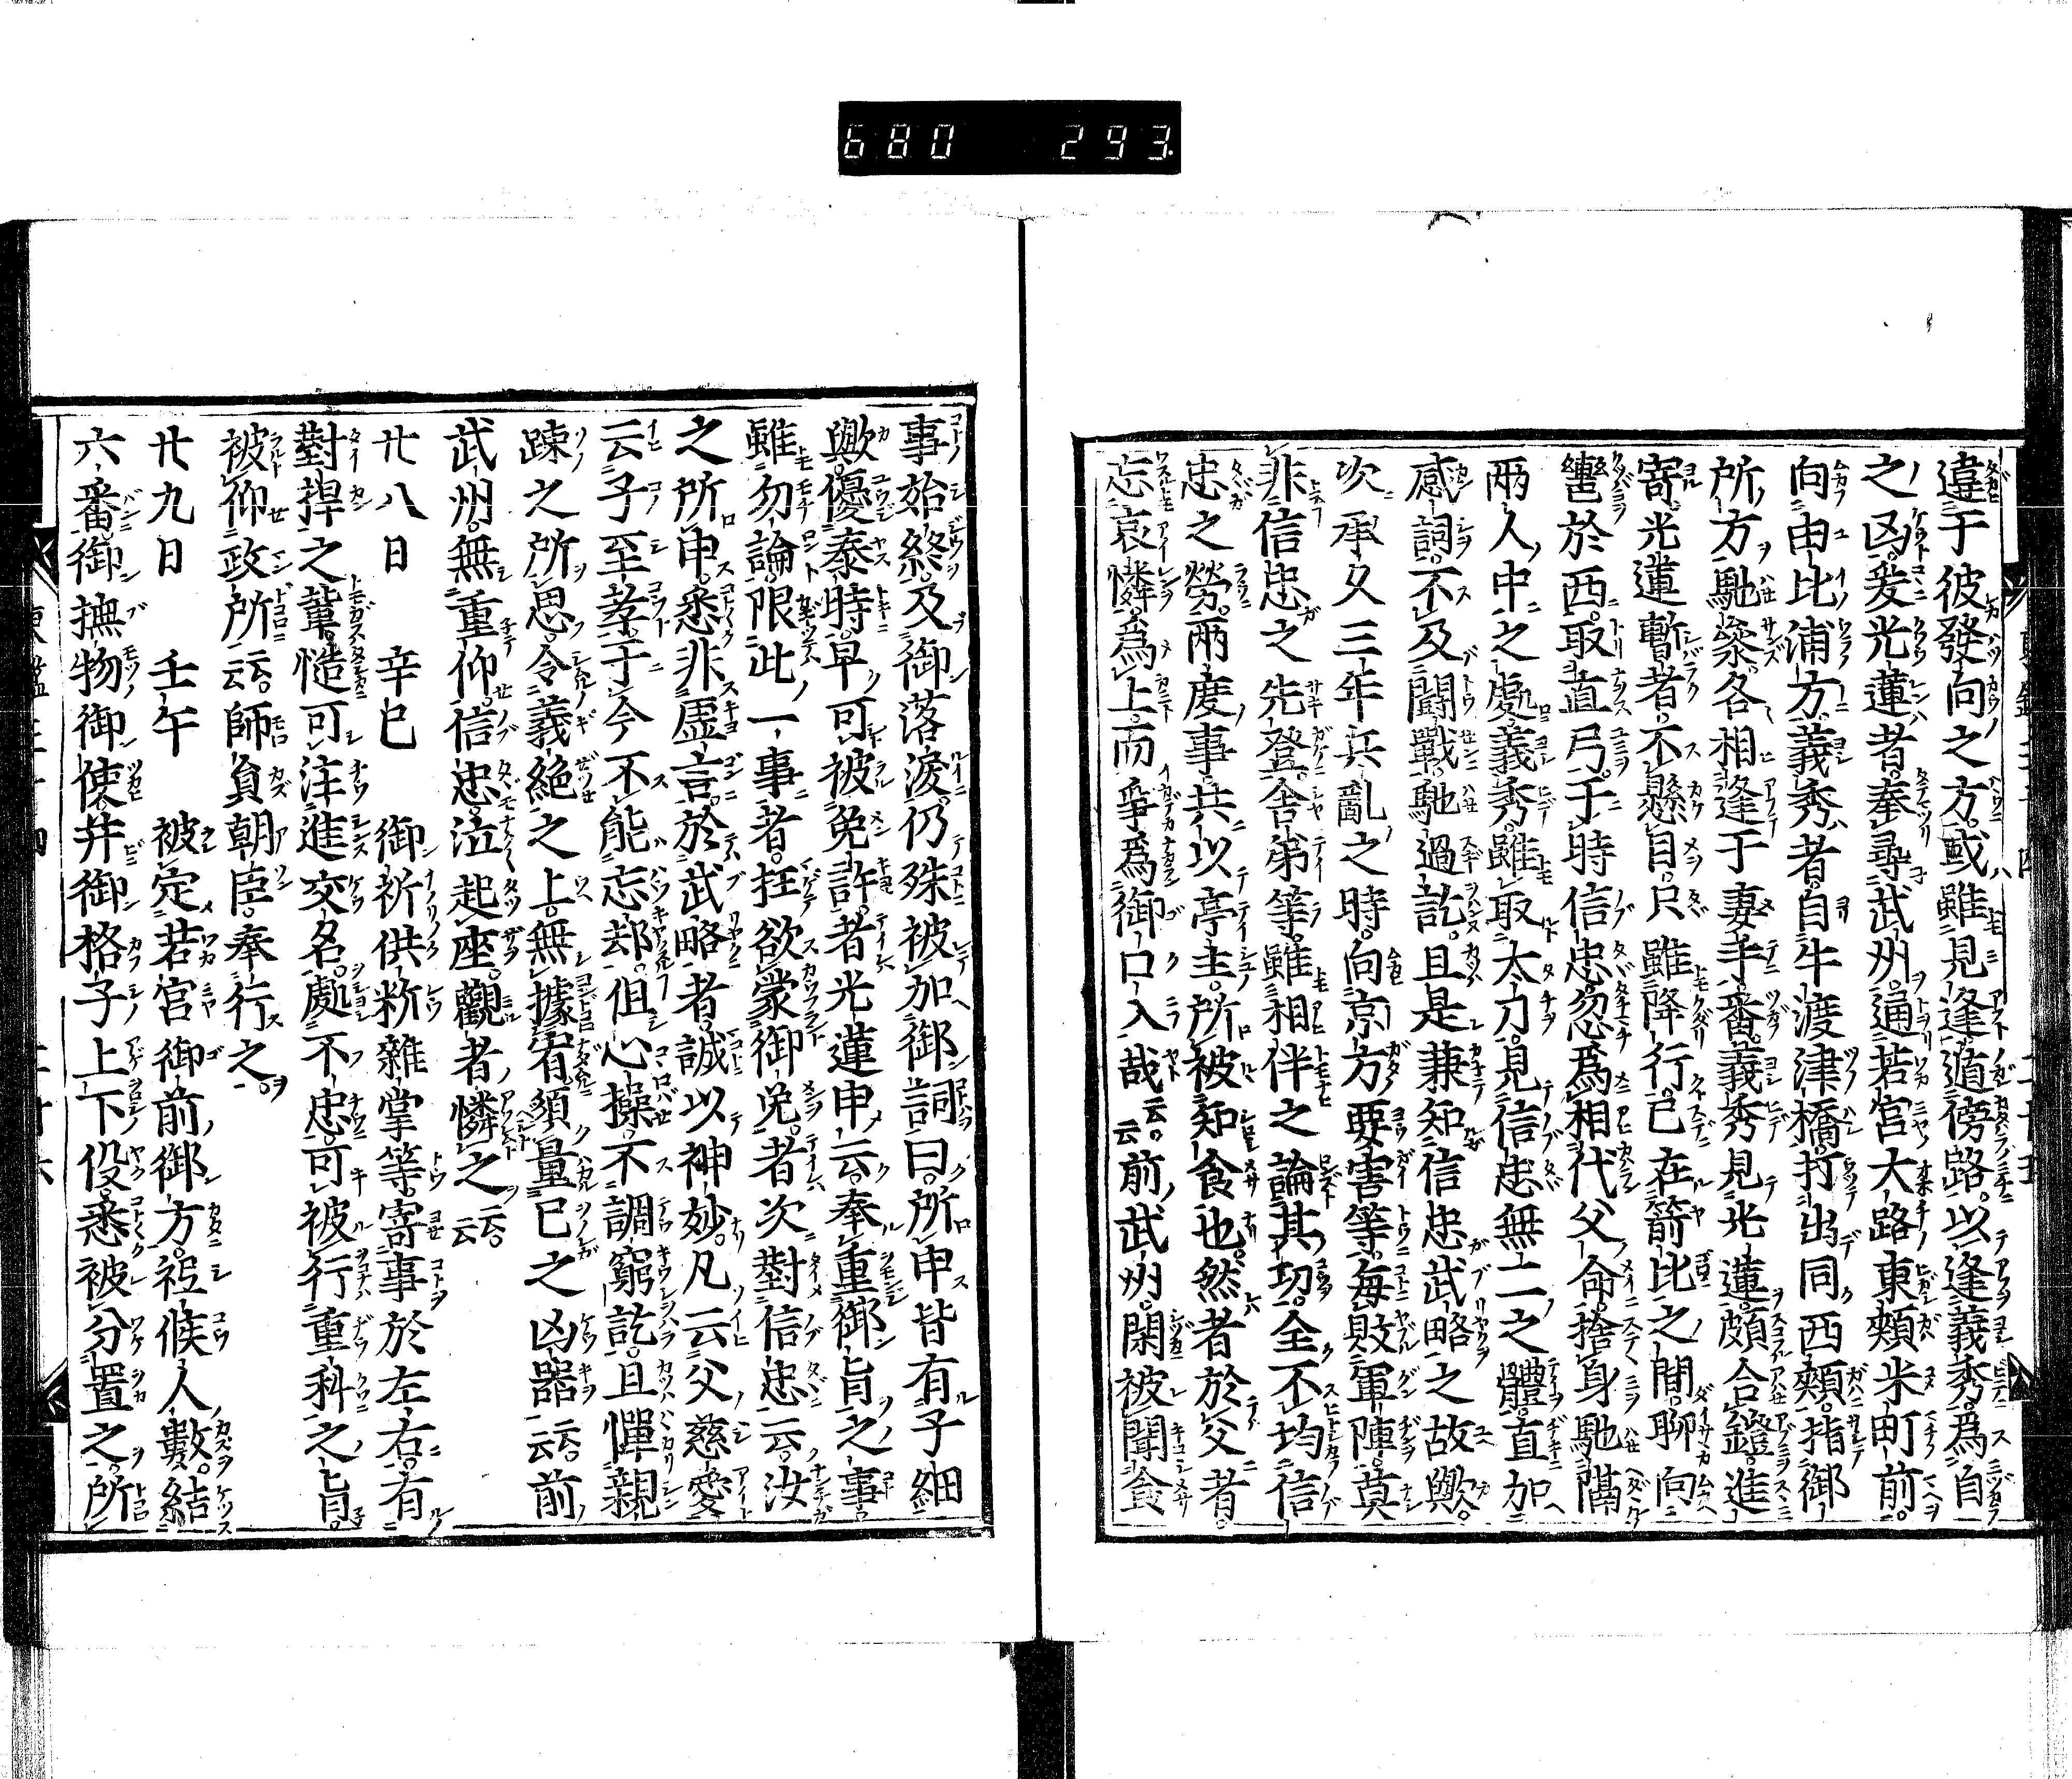 680 293
違于彼發向之方。或雖見逢遁傍路。以逢義秀。為自
之凶。爰光蓮者。奉尋武州。通若宮大路東頰米町前。
向由比浦方。義秀者。自牛渡津橋。打出同西頰。指御
所方馳參。各相逢于妻手番。義秀見光蓮。頗合鐙進
寄。光蓮暫者。不懸目。只雖降行。已在箭比之間。聊向
轡於西。取直弓。于時信忠。忽為相代父命。捨身馳隔
兩人中之處。義秀雖取太刀。見信忠無二之體。直加
感詞。不及鬪戰。馳過訖。且是兼知信忠武略之故歟。
次承久三年兵亂之時。向京方要害等。每敗軍陣。莫
非信忠之先登。舍弟等雖相伴之論其功。全不均信
忠之勞。兩度事共以亭主所被知食也。然者於父者。
忘哀憐。為上而爭為御口入哉云云。前武州。閑被聞食
事始終。及御落淚。仍殊被加御詞曰。所申皆有子細
歟。優泰時。早可被免許者。光蓮申云。奉重御旨之事
雖勿論。限此一事者。抂欲蒙御免者。次對信忠云。汝
之所申。悉非虛言。於武略者。誠以神妙。凡云父慈愛
云子至孝。于今不能忘却。但心操不調窮訖。且憚親
踈之所思。令義絕之上。無據宥。須量已之凶器云云。前
武州。無重仰。信忠。泣起座。觀者憐之云云。
廿八日 辛巳 御祈供粁雜掌等。寄事於左右。有
對捍之輩。慥可注進交名。處不忠。可被行重科之旨。
被仰政所云云。師員朝臣。奉行之。
廿九日 壬午 被定若宮御前御方祗候人數。結
六番御撫物御使。幷御格子上下役。悉被分置之。所